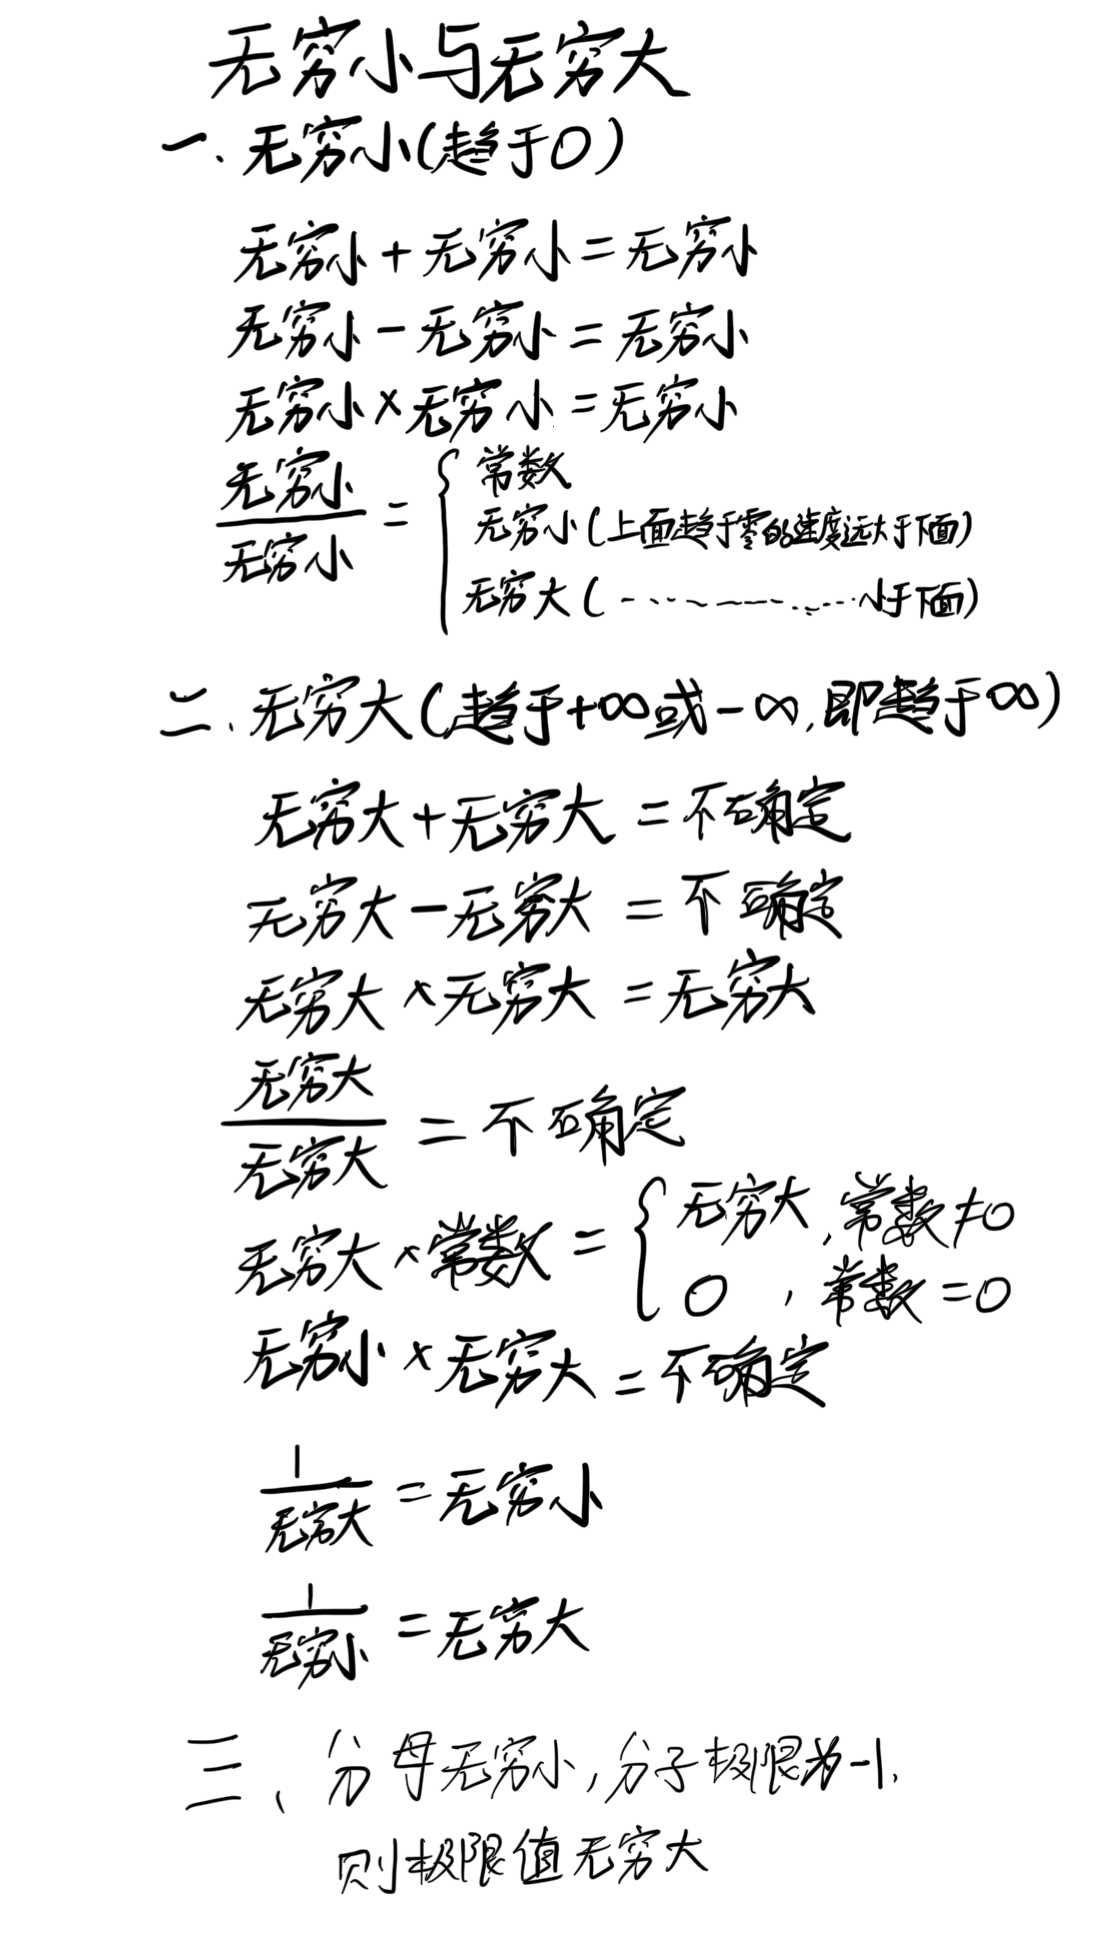 无穷小与无穷大
一.无穷小(趋于0)
无穷小+无穷小=无穷小
无穷小-无穷小=无穷小
无穷小×无穷小=无穷小
无穷小/无穷小={常数
无穷小(上面趋于零的速度远大于下面)
无穷大(----------小于下面)
二.无穷大(趋于+∞或-∞,即趋于∞)
无穷大+无穷大=不确定
无穷大-无穷大=不确定
无穷大×无穷大=无穷大
无穷大/无穷大=不确定
无穷大×常数={无穷大,常数≠0
0,常数=0
无穷小×无穷大=不确定
1/无穷大=无穷小
1/无穷小=无穷大
三、分母无穷小,分子极限为-1,
则极限值无穷大